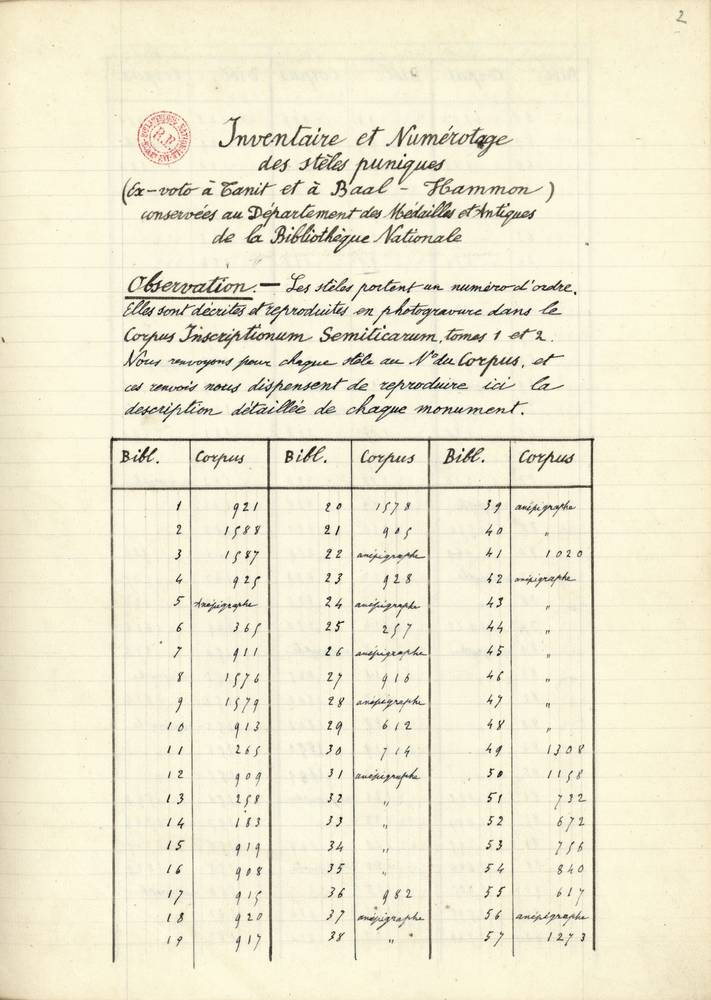 2
BIBLIOTHEQUE NATIONALE
R.F.
Inventaire et Numérotage
des stèles puniques
(Ex-voto à Tanit et à Baal - Hammon)
conservées au Département des Médailles et Antiques
de la Bibliothèque Nationale
Observation. — Les stèles portent un numéro d'ordre.
Elles sont décrites et reproduites en photogravure dans le
Corpus Inscriptionum Semiticarum, tomes 1 et 2.
Nous renvoyons pour chaque stèle au N° du Corpus, et
ces renvois nous dispensent de reproduire ici la
description détaillée de chaque monument.
Bibl. Corpus Bibl. Corpus Bibl. Corpus
1 921 20 1578 39 anépigraphe
2 1588 21 905 40 "
3 1587 22 anépigraphe 41 1020
4 925 23 928 42 anépigraphe
5 Anépigraphe 24 anépigraphe 43 "
6 365 25 257 44 "
7 911 26 anépigraphe 45 "
8 1576 27 916 46 "
9 1579 28 anépigraphe 47 "
10 913 29 612 48 "
11 265 30 714 49 1308
12 909 31 anépigraphe 50 1158
13 258 32 " 51 732
14 183 33 " 52 672
15 919 34 " 53 756
16 908 35 " 54 840
17 915 36 982 55 617
18 920 37 anépigraphe 56 anépigraphe
19 917 38 " 57 1273